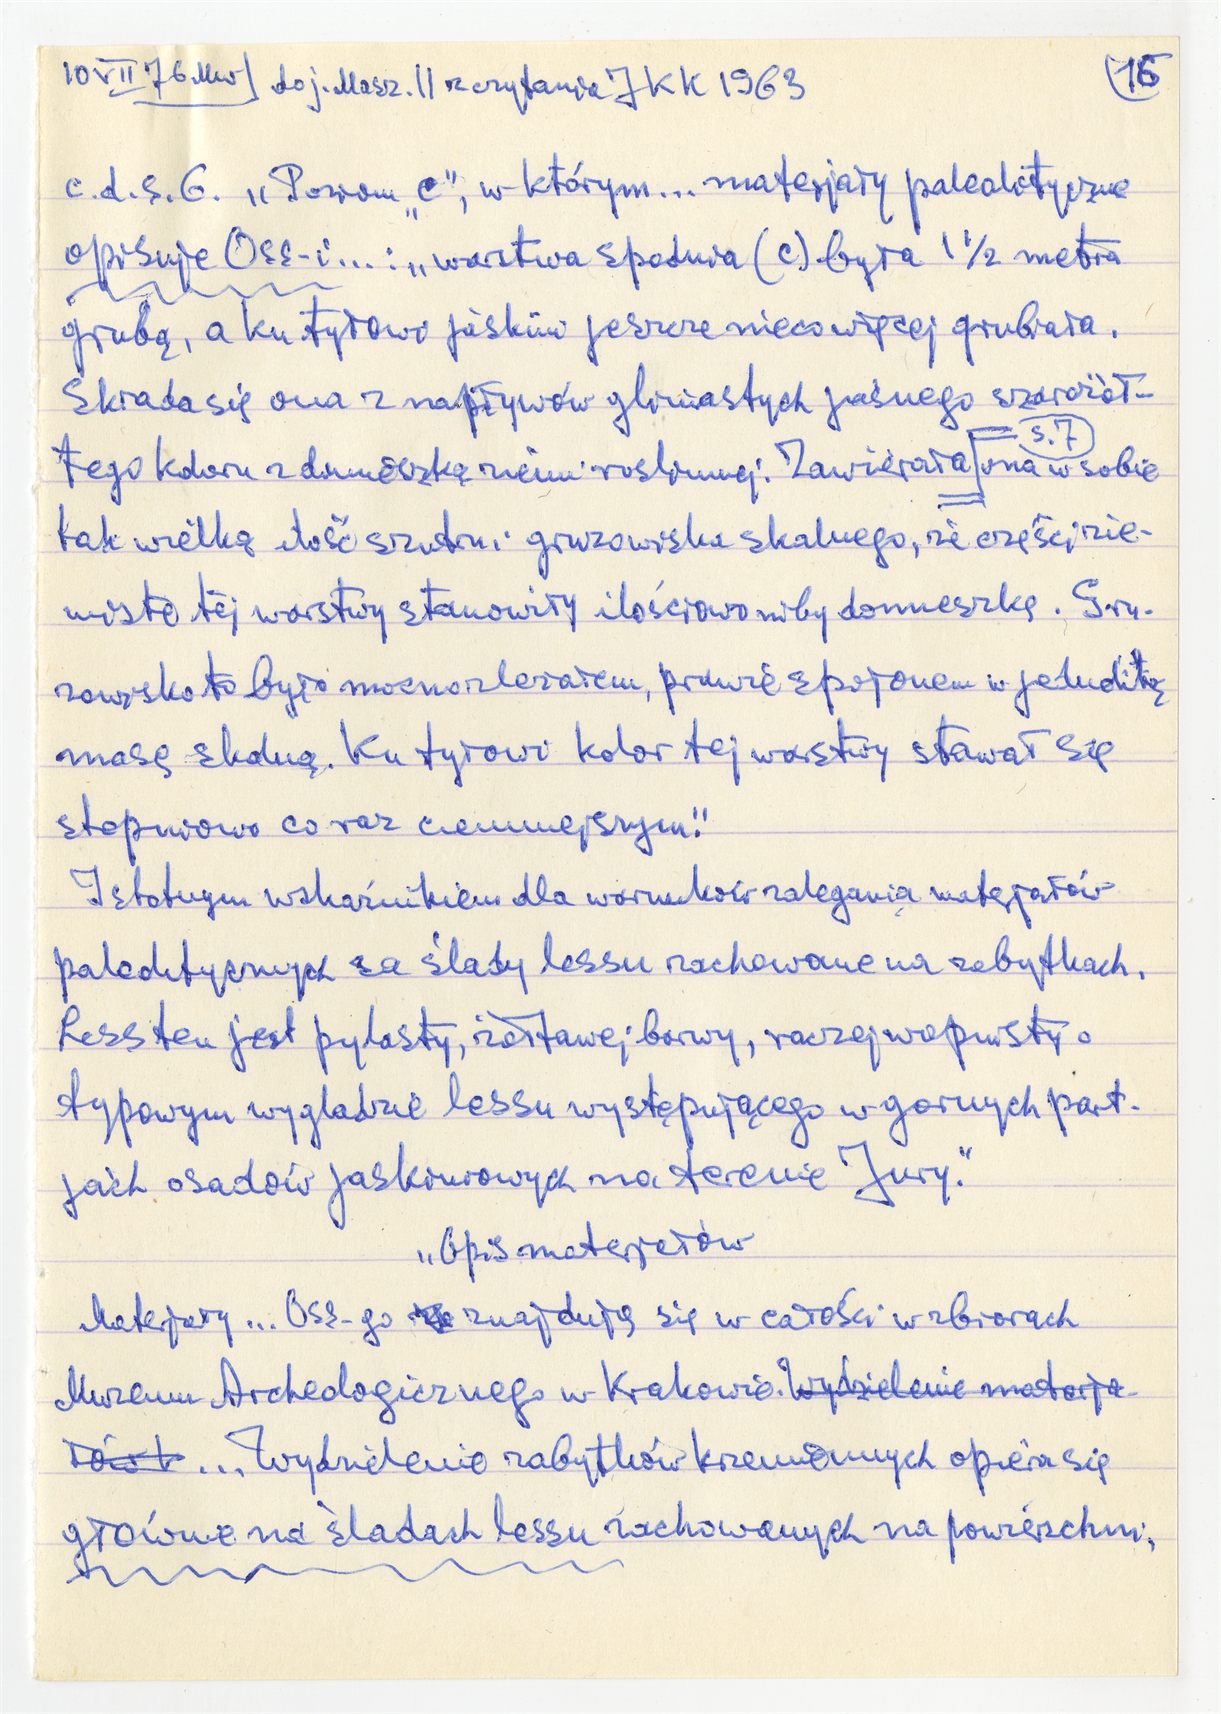 10 VII 76 Mw] do j. Masz. II z czytania JKK 1963 (15
c.d.s.6. „Poziom „c”, w którym... materjały paleolityczne
opisuje Oss-i...: „warstwa spodnia (c) była 1 1/2 metra
grubą, a ku tyłowi jaskini jeszcze nieco więcej grubiała.
Składa się ona z napływów gliniastych jasnego szarożół-
tego koloru z domieszką ziemi roślinnej. Zawierała [ona w sobie
s.7
tak wielką ilość szutru i gruzowiska skalnego, że części zie-
miste tej warstwy stanowiły ilościowo niby domieszkę. Gru-
zowisko to było mocno zleżałem, prawie spojonem w jednolitą
masę skalną. Ku tyłowi kolor tej warstwy stawał się
stopniowo co raz ciemniejszym.”
Istotnym wskaźnikiem dla warunków zalegania materjałów
paleolitycznych są ślady lessu zachowane na zabytkach.
Less ten jest pylasty, żółtawej barwy, raczej wapnisty o
typowym wyglądzie lessu występującego w gornych part-
jach osadów jaskiniowych na terenie Jury.”
„Opis materjałów
Materjały ... Oss-go znajdują się w całości w zbiorach
Muzeum Archeologicznego w Krakowie. Wydzielenie materja-
łów ... Wydzielenie zabytków krzemiennych opiera się
głównie na śladach lessu zachowanych na powierzchni,